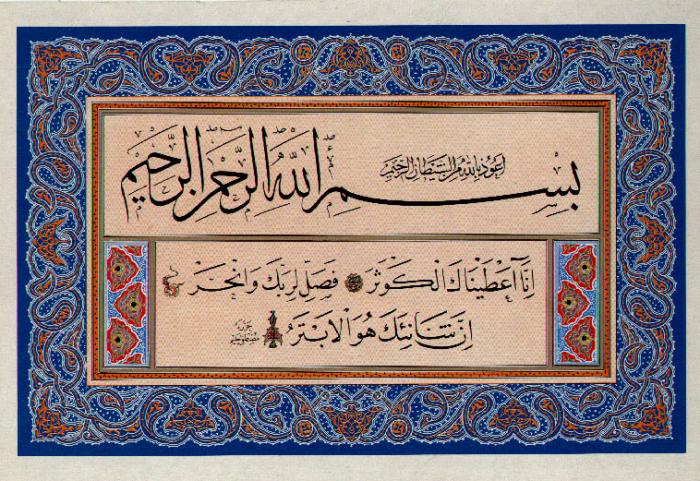 اَعُوذُ بِاللّٰهِ مِنَ الشَّيْطَانِ الرَّجِيمِ
بِسْمِ اللّٰهِ الرَّحْمٰنِ الرَّحِيمِ
اِنَّٓا اَعْطَيْنَاكَ الْكَوْثَرَ فَصَلِّ لِرَبِّكَ وَانْحَرْ
اِنَّ شَانِئَكَ هُوَ الْاَبْتَرُ